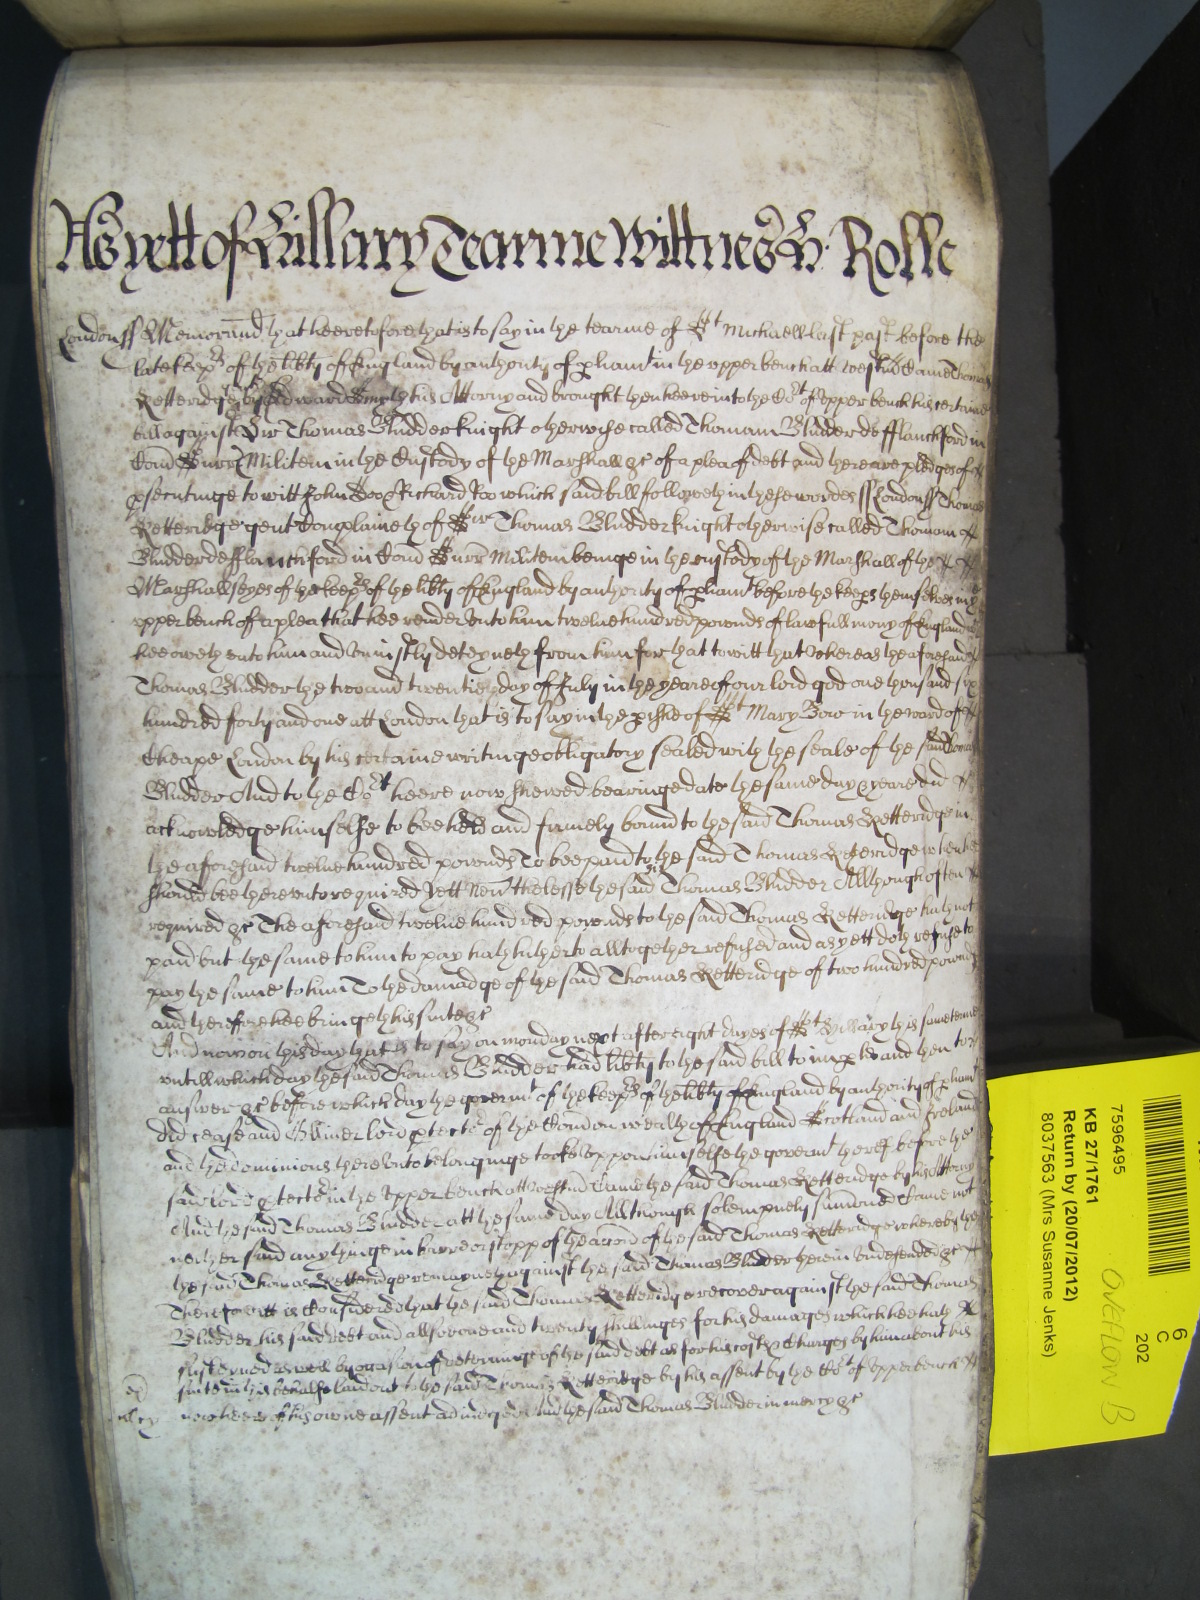 As yett of Hillary Tearme Wittnes H: Rolle
London ss Memorand that heeretofore that is to say in the tearme of St Michaell last past before the
late keeps of the libty of England by authority of pliamt in the upper bench att Westmr Came Thomas
Ketteridge by Edward Smyth his Attorny and brought then heere into the Cort of Upper bench his certaine
bill against Sir Thomas Bludder knight otherwise called Thomam Bludder de fflanchford in
Com Surr Militem in the Custody of the Marshall &c of a plea of debt and there are pledges of
psecutinge to witt John Doo & Richard Roo which said bill followeth in these wordes ss London ss Thomas
Ketteridge gent Complaineth of Sir Thomas Bludder knight otherwise called Thomam
Bludder de fflanchford in Com Surr Militem beinge in the custody of the Marshall of the
Marshallseyes of the keeps of the libty of England by authority of pliamt before the keeps themselves in ye
upper bench of a plea that hee render unto him twelue hundred pownds of lawfull mony of England
hee oweth unto him and uniustly deteyneth from him for that to witt that whereas the aforesaid
Thomas Bludder the two and twentieth day of July in the yeare of our lord god one thousand six
hundred forty and one att London that is to say in the pishe of St Mary Bow in the ward of
Cheape London by his certaine writinge obligatory sealed with the seale of the said Thomas
Bludder And to the Cort heere now shewed bearinge date the same day & yeare did
acknowledge himselfe to bee held and firmely bound to the said Thomas Ketteridge in
the aforesaid twelue hundred pownds To bee paid to the said Thomas Ketteridge when hee
should bee thereunto required Yett neuthelesse the said Thomas Bludder Allthough often
required &c The aforesaid twelue hundred pownds to the said Thomas Ketteridge hath not
paid but the same to him to pay hath hitherto alltogether refused and as yett doth refuse to
pay the same to him To the damadge of the said Thomas Ketteridge of two hundred pownds
and therefore hee bringeth his suite &c
And now on this day that is to say on monday next after eight dayes of St Hillary this same terme
untill which day the said Thomas Bludder had libty to the said bill to imple and then to
answer &c before which day the governmt of the keeps of the libty of England by authority of pliamt
did cease and Oliver lord ptector of the Comon wealth of England Scotland and Ireland
and the dominions thereunto belonginge tooke uppon himselfe the governmt thereof before the
said lord ptector in the Upper bench att Westmr Came the said Thomas Ketteridge by his Attorny
And the said Thomas Bludder att the same day Allthough solempnely sumoned Came not
nether said any thinge in barre or stopp of the accon of the said Thomas Ketteridge whereby the
the said Thomas Ketteridge remayneth against the said Thomas Bludder therein undefended &c
Therefore itt is Considered that the said Thomas Ketteridge recover against the said Thomas
Bludder his said debt and allsoe one and twenty shillinges for his damages which hee hath
susteyned aswell by ocasion of deteininge of the said debt as for his costs & Charges by him about his
suite in this behalfe laid out to the said Thomas Ketteridge by his assent by the Cort of Upper bench
now heere of his owne assent adiudged And the said Thomas Bludder in mercy &c
mcy
7596495
KB 27/1761
Return by (20/07/2012)
8037563 (Mrs Susanne Jenks)
OVERFLOW B
6
C
202